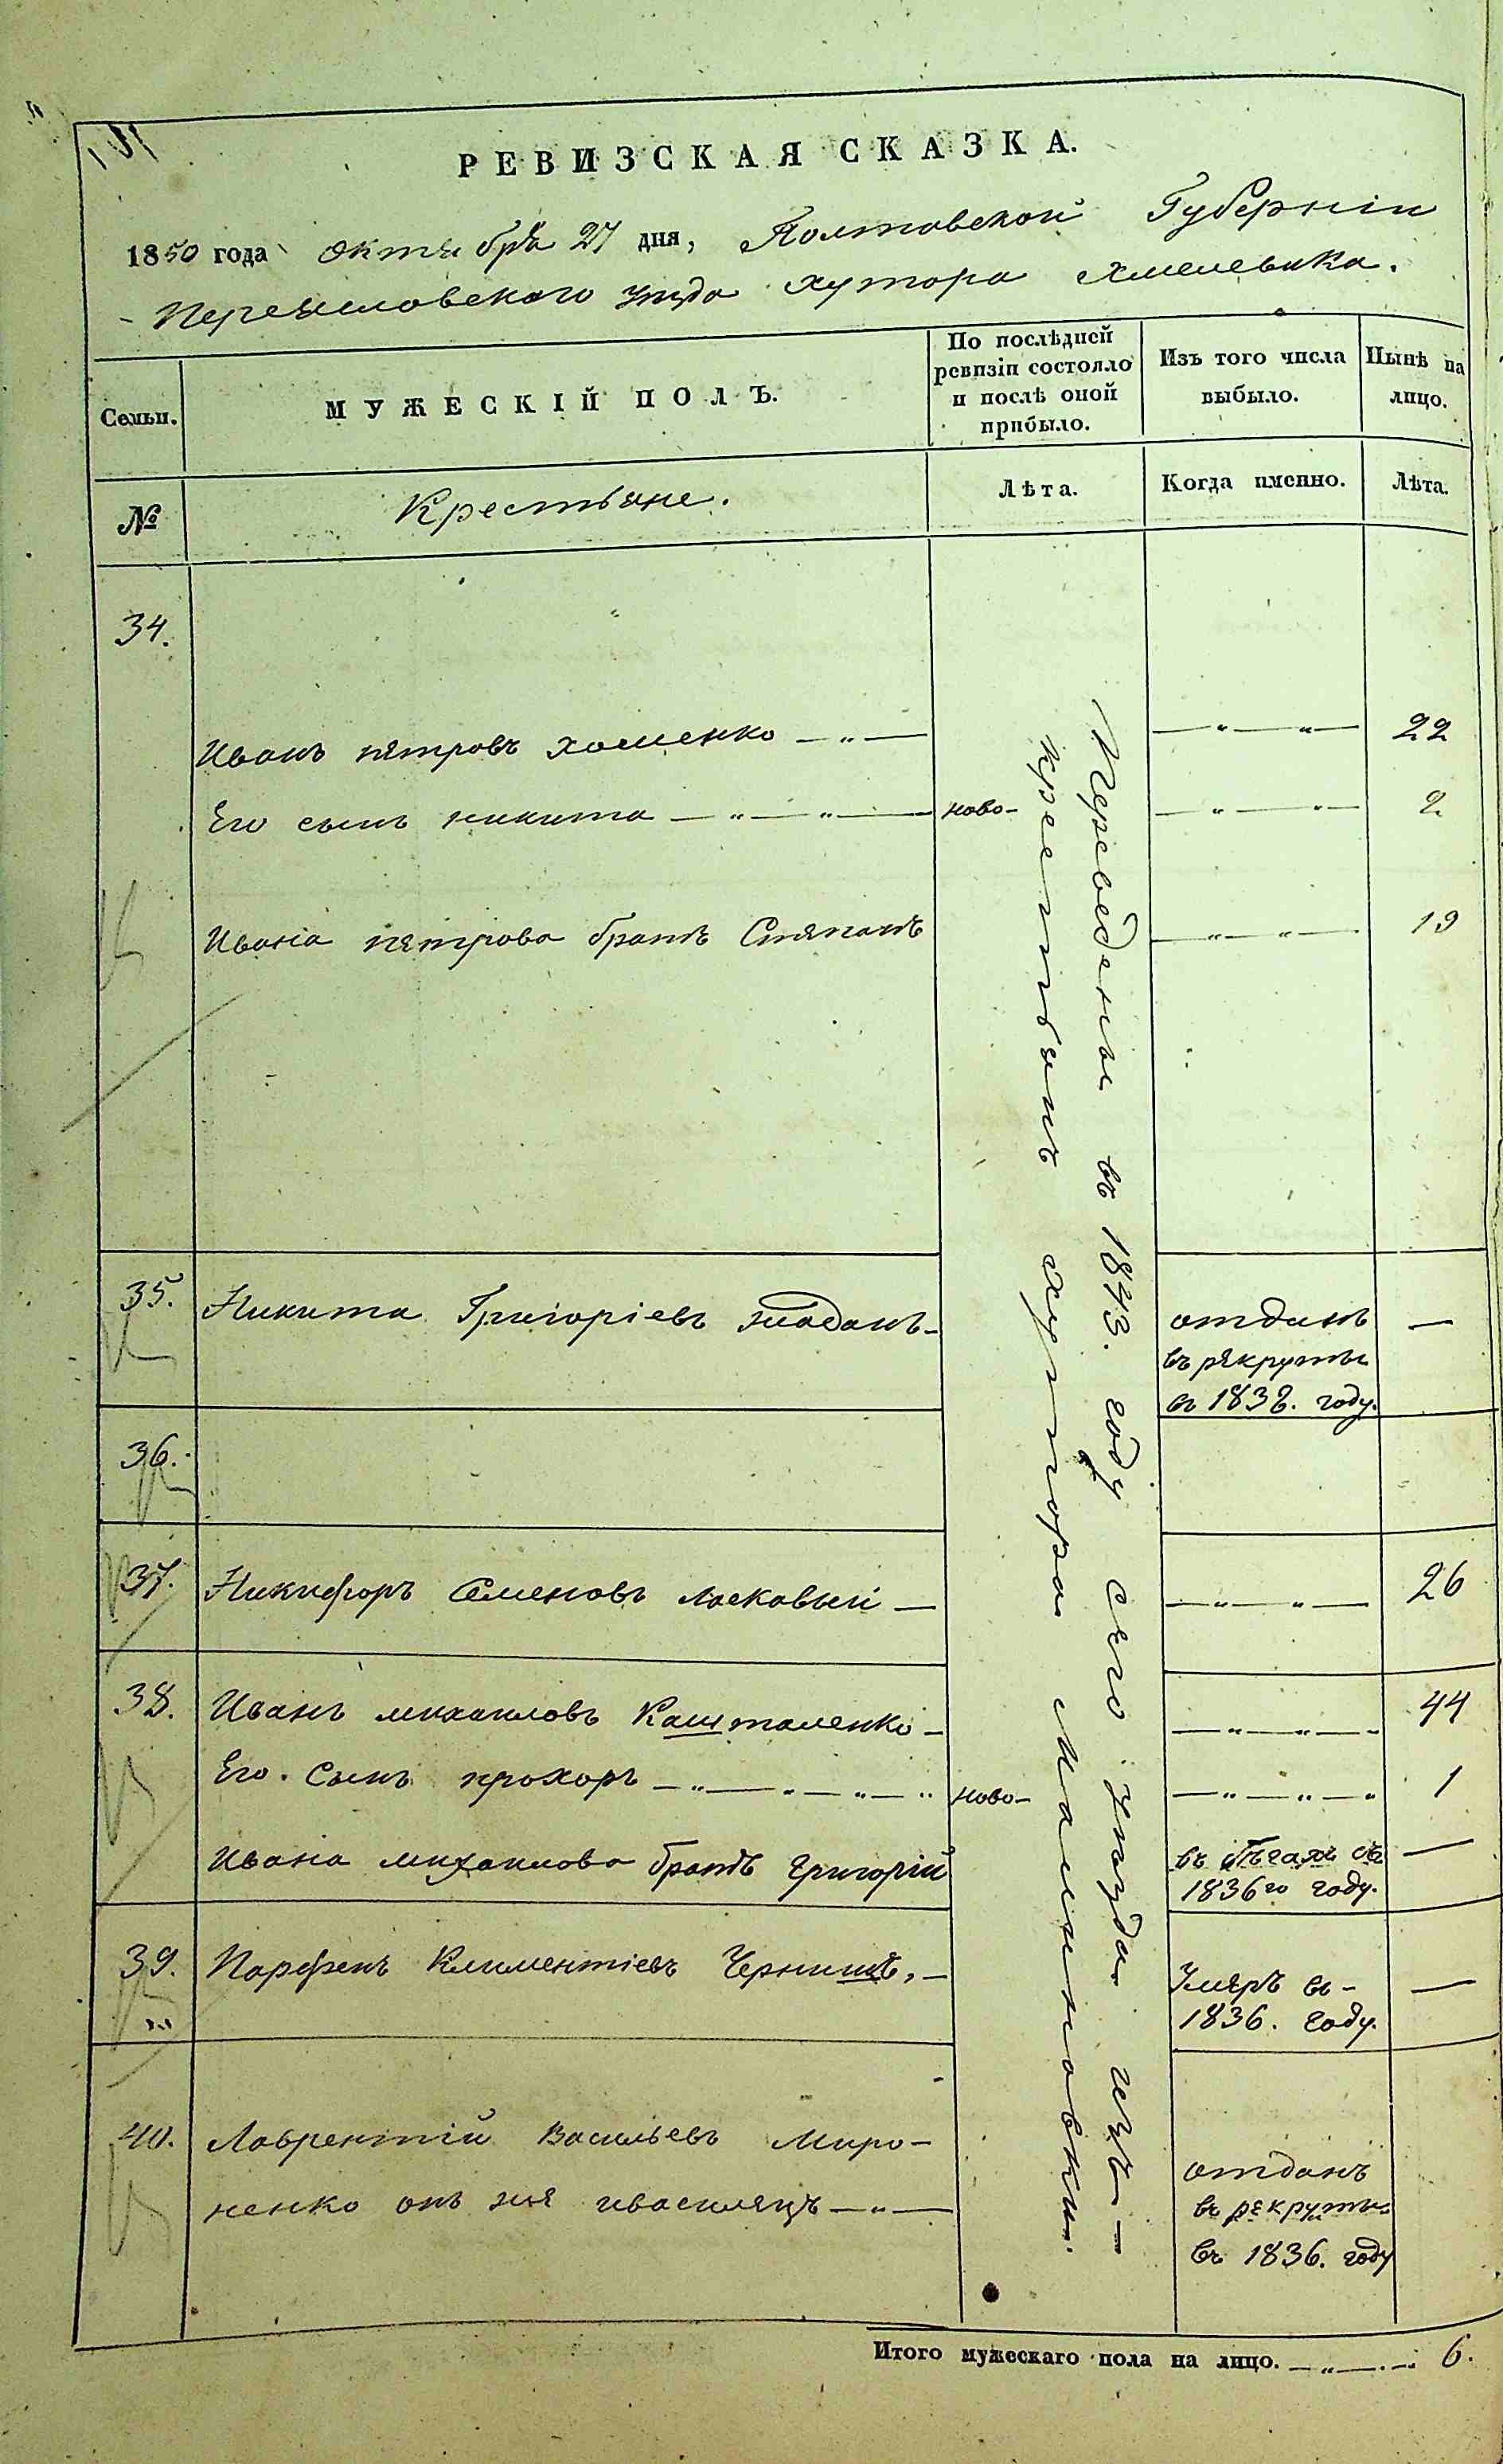 РЕВИЗСКАЯ СКАЗКА.
1850 года Октября 27 дня, Полтавской Губерніи
Переяславского уезда хутора Хмелевика.
Семьи.
МУЖЕСКІЙ ПОЛЪ.
По послѣдней
ревизіи состояло
и послѣ оной
прибыло.
Изъ того числа
выбыло.
Нынѣ на
лицо.
№
Крестьяне.
Лѣта.
Когда именно.
Лѣта.
Переведены въ 1843. году сего уезда изъ —
крестьянъ хутора Малиновки.
34.
Иванъ петровъ хоменко — " — — " — " — 22
Его сынъ никита — " — " — ново- — " — " — 2
Ивана петрова братъ Степанъ — " — " — 19
35. Никита Григоріевъ — отданъ —
въ рекруты
в 1838. году.
36.
37. Никифоръ Семеновъ Ласковый — — " — " — 26
38. Иванъ михаиловъ Кашталенко — — " — " — 44
Его Сынъ прохоръ — " — " — " — " ново- — " — " — " 1
Ивана михаилова братъ григорій въ бѣгахъ съ —
1836го году.
39. Парфенъ Климентіевъ Чернишъ, — Умеръ в- —
1836. году.
40. Лаврентій Васильевъ Миро-
ненко онъ же ивасилецъ — " — отданъ
въ рекруты
въ 1836. году
Итого мужескаго пола на лицо. — " — . — 6.